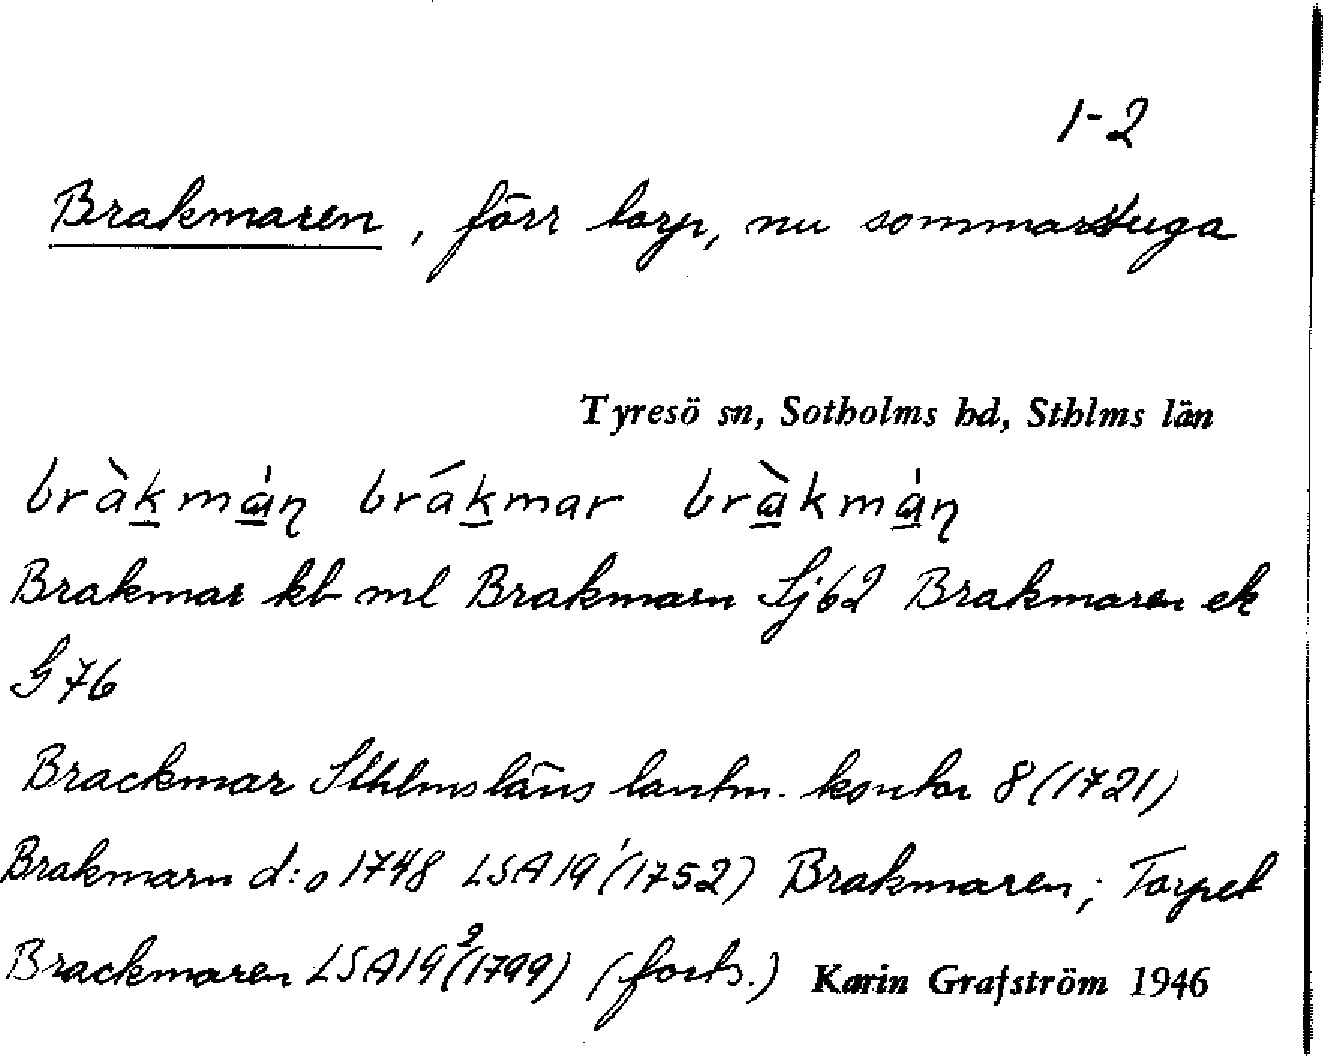 1-2
Brakmaren, förr torp, nu sommarstuga
Tyresö sn, Sotholms hd, Sthlms län
bràk̲má̲ɳ brák̲mar brà̲kmá̲ɳ
Brakmar kb ml Brakmarn Sj62 Brakmaren ek
G76
Brackmar Sthlmsläns lantm. kontor 8 (1721)
Brakmarn d:o 1748 LSA19¹(1752) Brakmaren; Torpet
Brackmaren LSA19²(1799) (forts.) Karin Grafström 1946